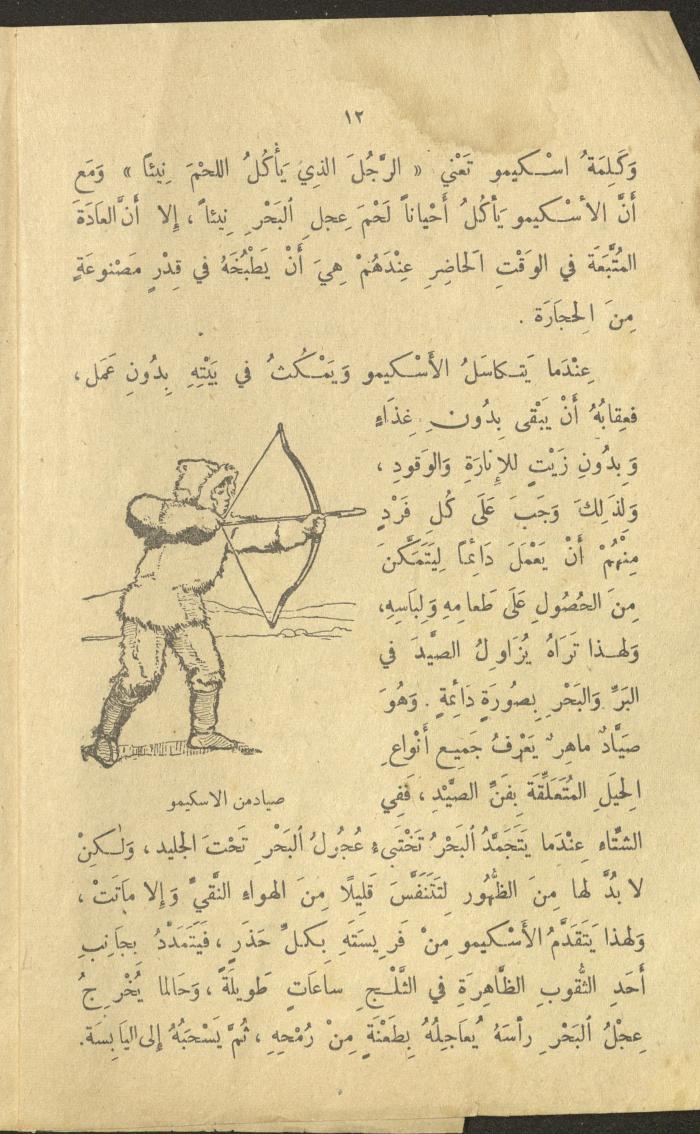 ١٢
وَكَلِمَةُ اسْكيمو تَعْني « الرَّجُلَ الذِي يَأْكُلُ اللحْمَ نِيئاً » وَمَع
أَنَّ الأسْكيمو يَأْكُلُ أَحْياناً لَحْمَ عِجلِ ٱلبَحْرِ نِيئاً ، إِلا أَنَّ العادَةَ
المُتَّبَعَة في الوَقْتِ الَحاضِرِ عِنْدَهُمْ هِيَ أَنْ يَطْبُخَهُ في قِدْرٍ مَصْنوعَةٍ
مِنَ الِحجارَة .
عِنْدَما يَتَكاسَلُ الأَسْكيمو وَيَمْكُثُ في بَيْتِهِ بِدُونِ عَمَل ،
فَعِقابُهُ أَنْ يَبْقى بِدُونِ غِذَاءٍ
وَبِدُونِ زَيْتٍ للإنارَةِ وَالوَقودِ ،
وَلذَلِكَ وَجَبَ عَلَى كُلِ فَرْدٍ
مِنْهُمْ أَنْ يَعْمَلَ دَائِمًا لِيَتَمَكَّنَ
مِنَ الحُصُولِ عَلَى طَعامِهِ وَلِبَاسِهِ،
وَلهـذا تَرَاهُ يُزَاوِلُ الصَّيدَ في
البَرِّ وَالبَحْرِ بِصُورَةٍ دَائِمةٍ . وَهُوَ
صَيَّادٌ ماهِرٌ يَعْرِفُ جَمِيع أَنْواعِ
الِحيَلِ المُتَعَلِّقَة بِفَنِّ الصَّيْدِ ، فَفِي
صيادمن الاسكيمو
الشتَّاءِ عِنْدَما يَتَجَمَّدُ ٱلبَحْرُ تَخْتَبِيءُ عُجُولُ ٱلبَحْرِ تَحْتَ الجليد ، وَلَكِنْ
لا بُدَّ لها مِنَ الظُّهُور لِتَتَنَفَّسَ قَلِيلًا مِنَ الهواءِ النَّقيِّ وَإِلا ماتَتْ ،
وَلهذا يَتَقَدَّمُ الأَسْكيمو مِنْ فَرِيسَتَهِ بِكلِّ حَذَرٍ ، فَيَتَمَدَّدُ بِجَانِبِ
أَحَدِ الثُّقوبِ الظَّاهِرَةِ في الثَّلْجِ ساعَاتٍ طَوِيلَةً ، وَحَالما يُخْرِجُ
عِجْلُ ٱلبَحْرِ رأسَهُ يُعاجِلُهُ بِطَعْنَةٍ مِنْ رُمْحِهِ ، ثُمَّ يَسْحَبُهُ إلى اليَابِسَة.